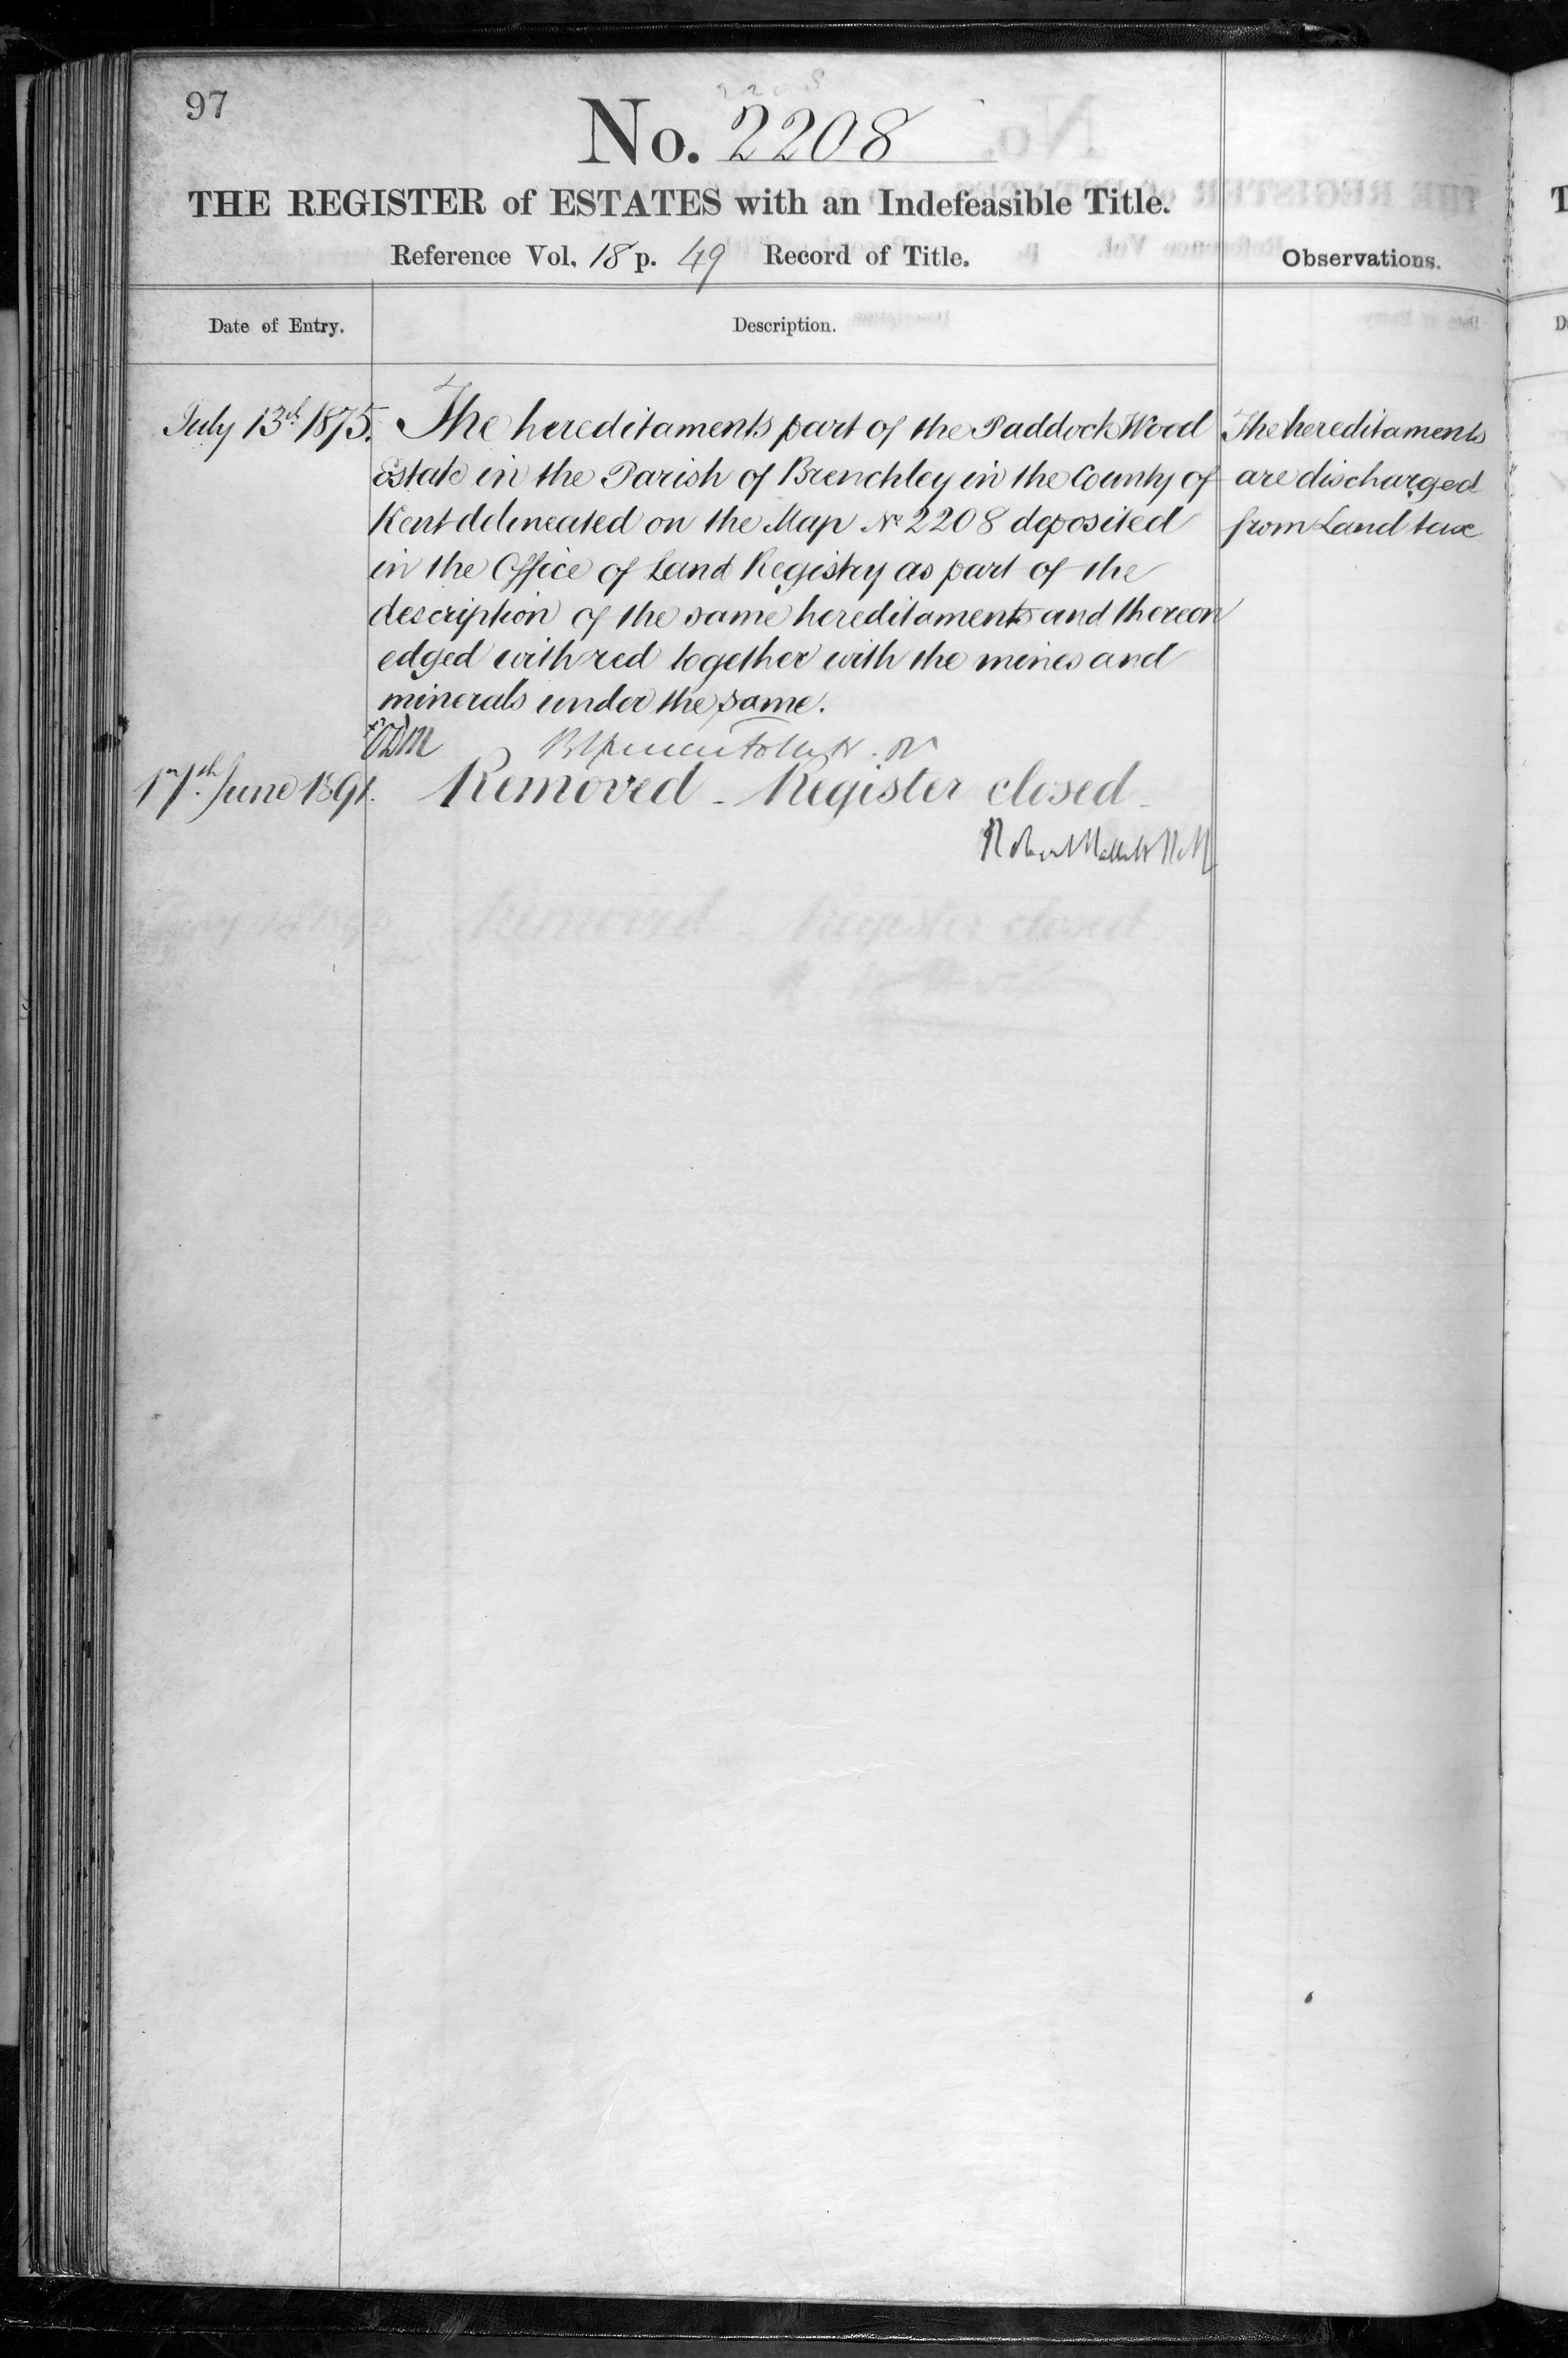 97
No. 2208
THE REGISTER of ESTATES with an Indefeasible Title.
Reference Vol. 18 p. 49 Record of Title.
Observations.
Date of Entry.
Description.
July 13th 1875.
The hereditaments part of the Paddock Wood
Estate in the Parish of Brenchley in the County of
Kent delineated on the Map No 2208 deposited
in the Office of Land Registry as part of the
description of the same hereditaments and thereon
edged with red together with the mines and
minerals under the same.
The hereditaments
are discharged
from Land tax
17th June 1891.
Removed - Register closed -